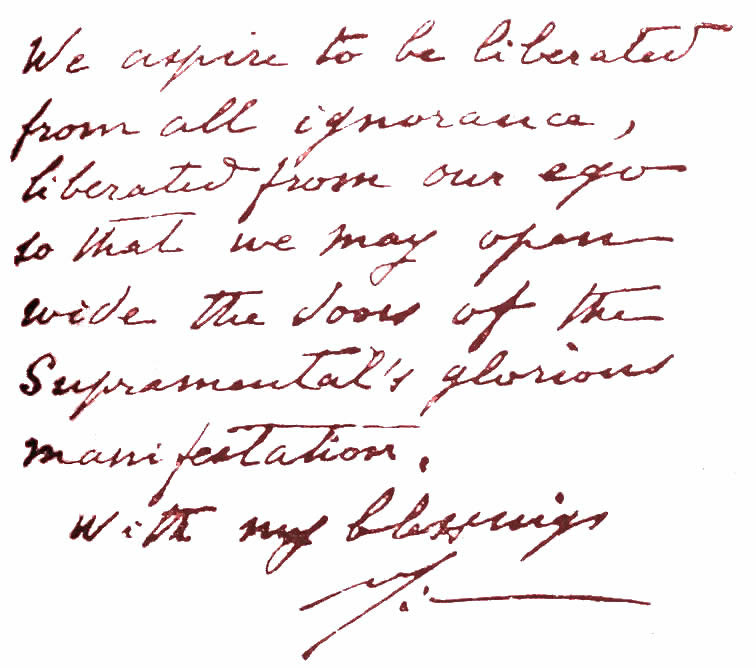 We aspire to be liberated
from all ignorance,
liberated from our ego
so that we may open
wide the doors of the
Supramental's glorious
manifestation.
With my blessings